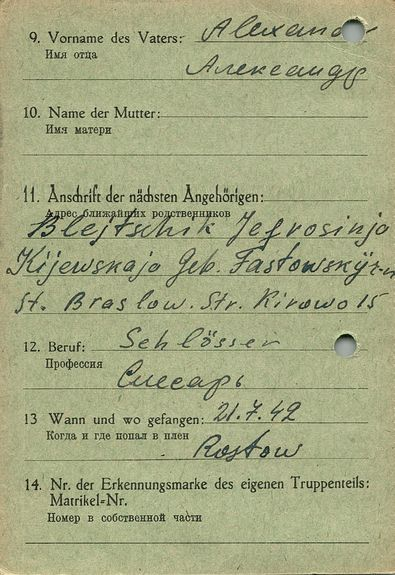 9. Vorname des Vaters: Alexander
Имя отца
Александр
10. Name der Mutter:
Имя матери
11. Anschrift der nächsten Angehörigen:
Адрес ближайших родственников
Blejtschik Jefrosinja
Kijewskaja Geb. Fastowskij r-n
St. Braslow. Str. Kirowo 15
12. Beruf: Schlösser
Профессия
Слесарь
13 Wann und wo gefangen: 21.7.42
Когда и где попал в плен
Rostow
14. Nr. der Erkennungsmarke des eigenen Truppenteils:
Matrikel-Nr.
Номер в собственной части